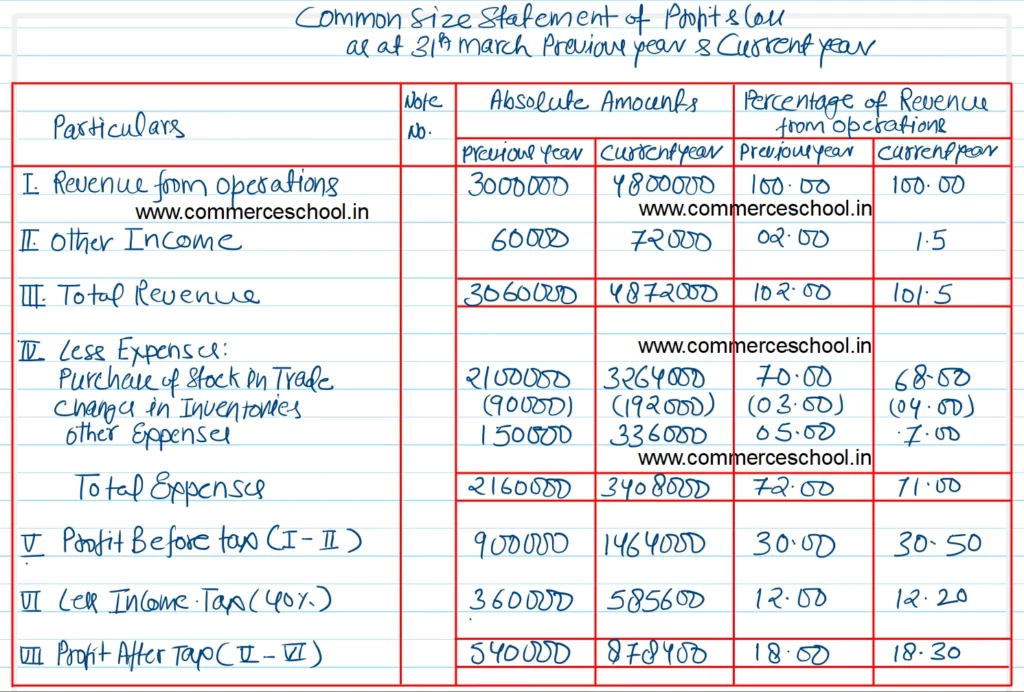 Common Size Statement of Profit & Loss
as at 31th march Previous year & Current year
Particulars Note No. Absolute Amounts Percentage of Revenue from operations
Previous year Current year Previous year Current year
I. Revenue from operations 3000000 4800000 100.00 100.00
www.commerceschool.in www.commerceschool.in
II. Other Income 60000 72000 02.00 1.5
III. Total Revenue 3060000 4872000 102.00 101.5
IV Less Expenses:
www.commerceschool.in
Purchase of Stock in Trade 2100000 3264000 70.00 68.00
Changes in Inventories (90000) (192000) (03.00) (04.00)
Other Expenses 150000 336000 05.00 7.00
www.commerceschool.in
Total Expenses 2160000 3408000 72.00 71.00
V Profit Before tax (I - II) 900000 1464000 30.00 30.50
VI Less Income Tax (40%) 360000 585600 12.00 12.20
VII Profit After Tax (V - VI) 540000 878400 18.00 18.30